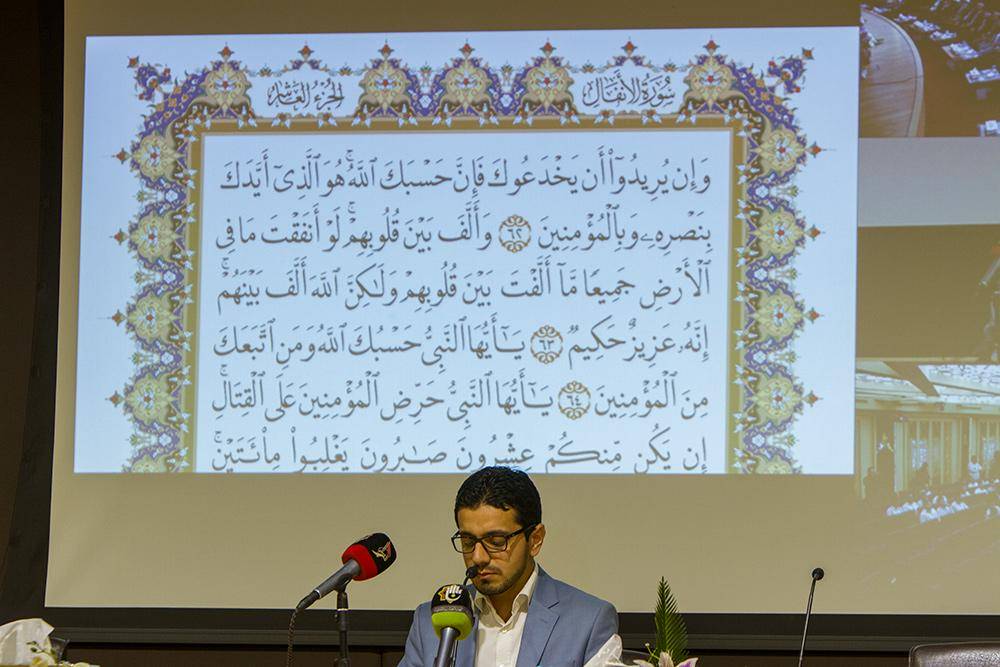 سُورَةُ الأَنفَالِ
الجُزءُ العَاشِرُ
وَإِن يُرِيدُوٓا۟ أَن يَخْدَعُوكَ فَإِنَّ حَسْبَكَ ٱللَّهُ ۚ هُوَ ٱلَّذِىٓ أَيَّدَكَ
بِنَصْرِهِۦ وَبِٱلْمُؤْمِنِينَ ٦٢ وَأَلَّفَ بَيْنَ قُلُوبِهِمْ ۚ لَوْ أَنفَقْتَ مَا فِى
ٱلْأَرْضِ جَمِيعًا مَّآ أَلَّفْتَ بَيْنَ قُلُوبِهِمْ وَلَـٰكِنَّ ٱللَّهَ أَلَّفَ بَيْنَهُمْ ۚ
إِنَّهُۥ عَزِيزٌ حَكِيمٌ ٦٣ يَـٰٓأَيُّهَا ٱلنَّبِىُّ حَسْبُكَ ٱللَّهُ وَمَنِ ٱتَّبَعَكَ
مِنَ ٱلْمُؤْمِنِينَ ٦٤ يَـٰٓأَيُّهَا ٱلنَّبِىُّ حَرِّضِ ٱلْمُؤْمِنِينَ عَلَى ٱلْقِتَالِ ۚ
إِن يَكُن مِّنكُمْ عِشْرُونَ صَـٰبِرُونَ يَغْلِبُوا۟ مِا۟ئَتَيْنِ ۚ